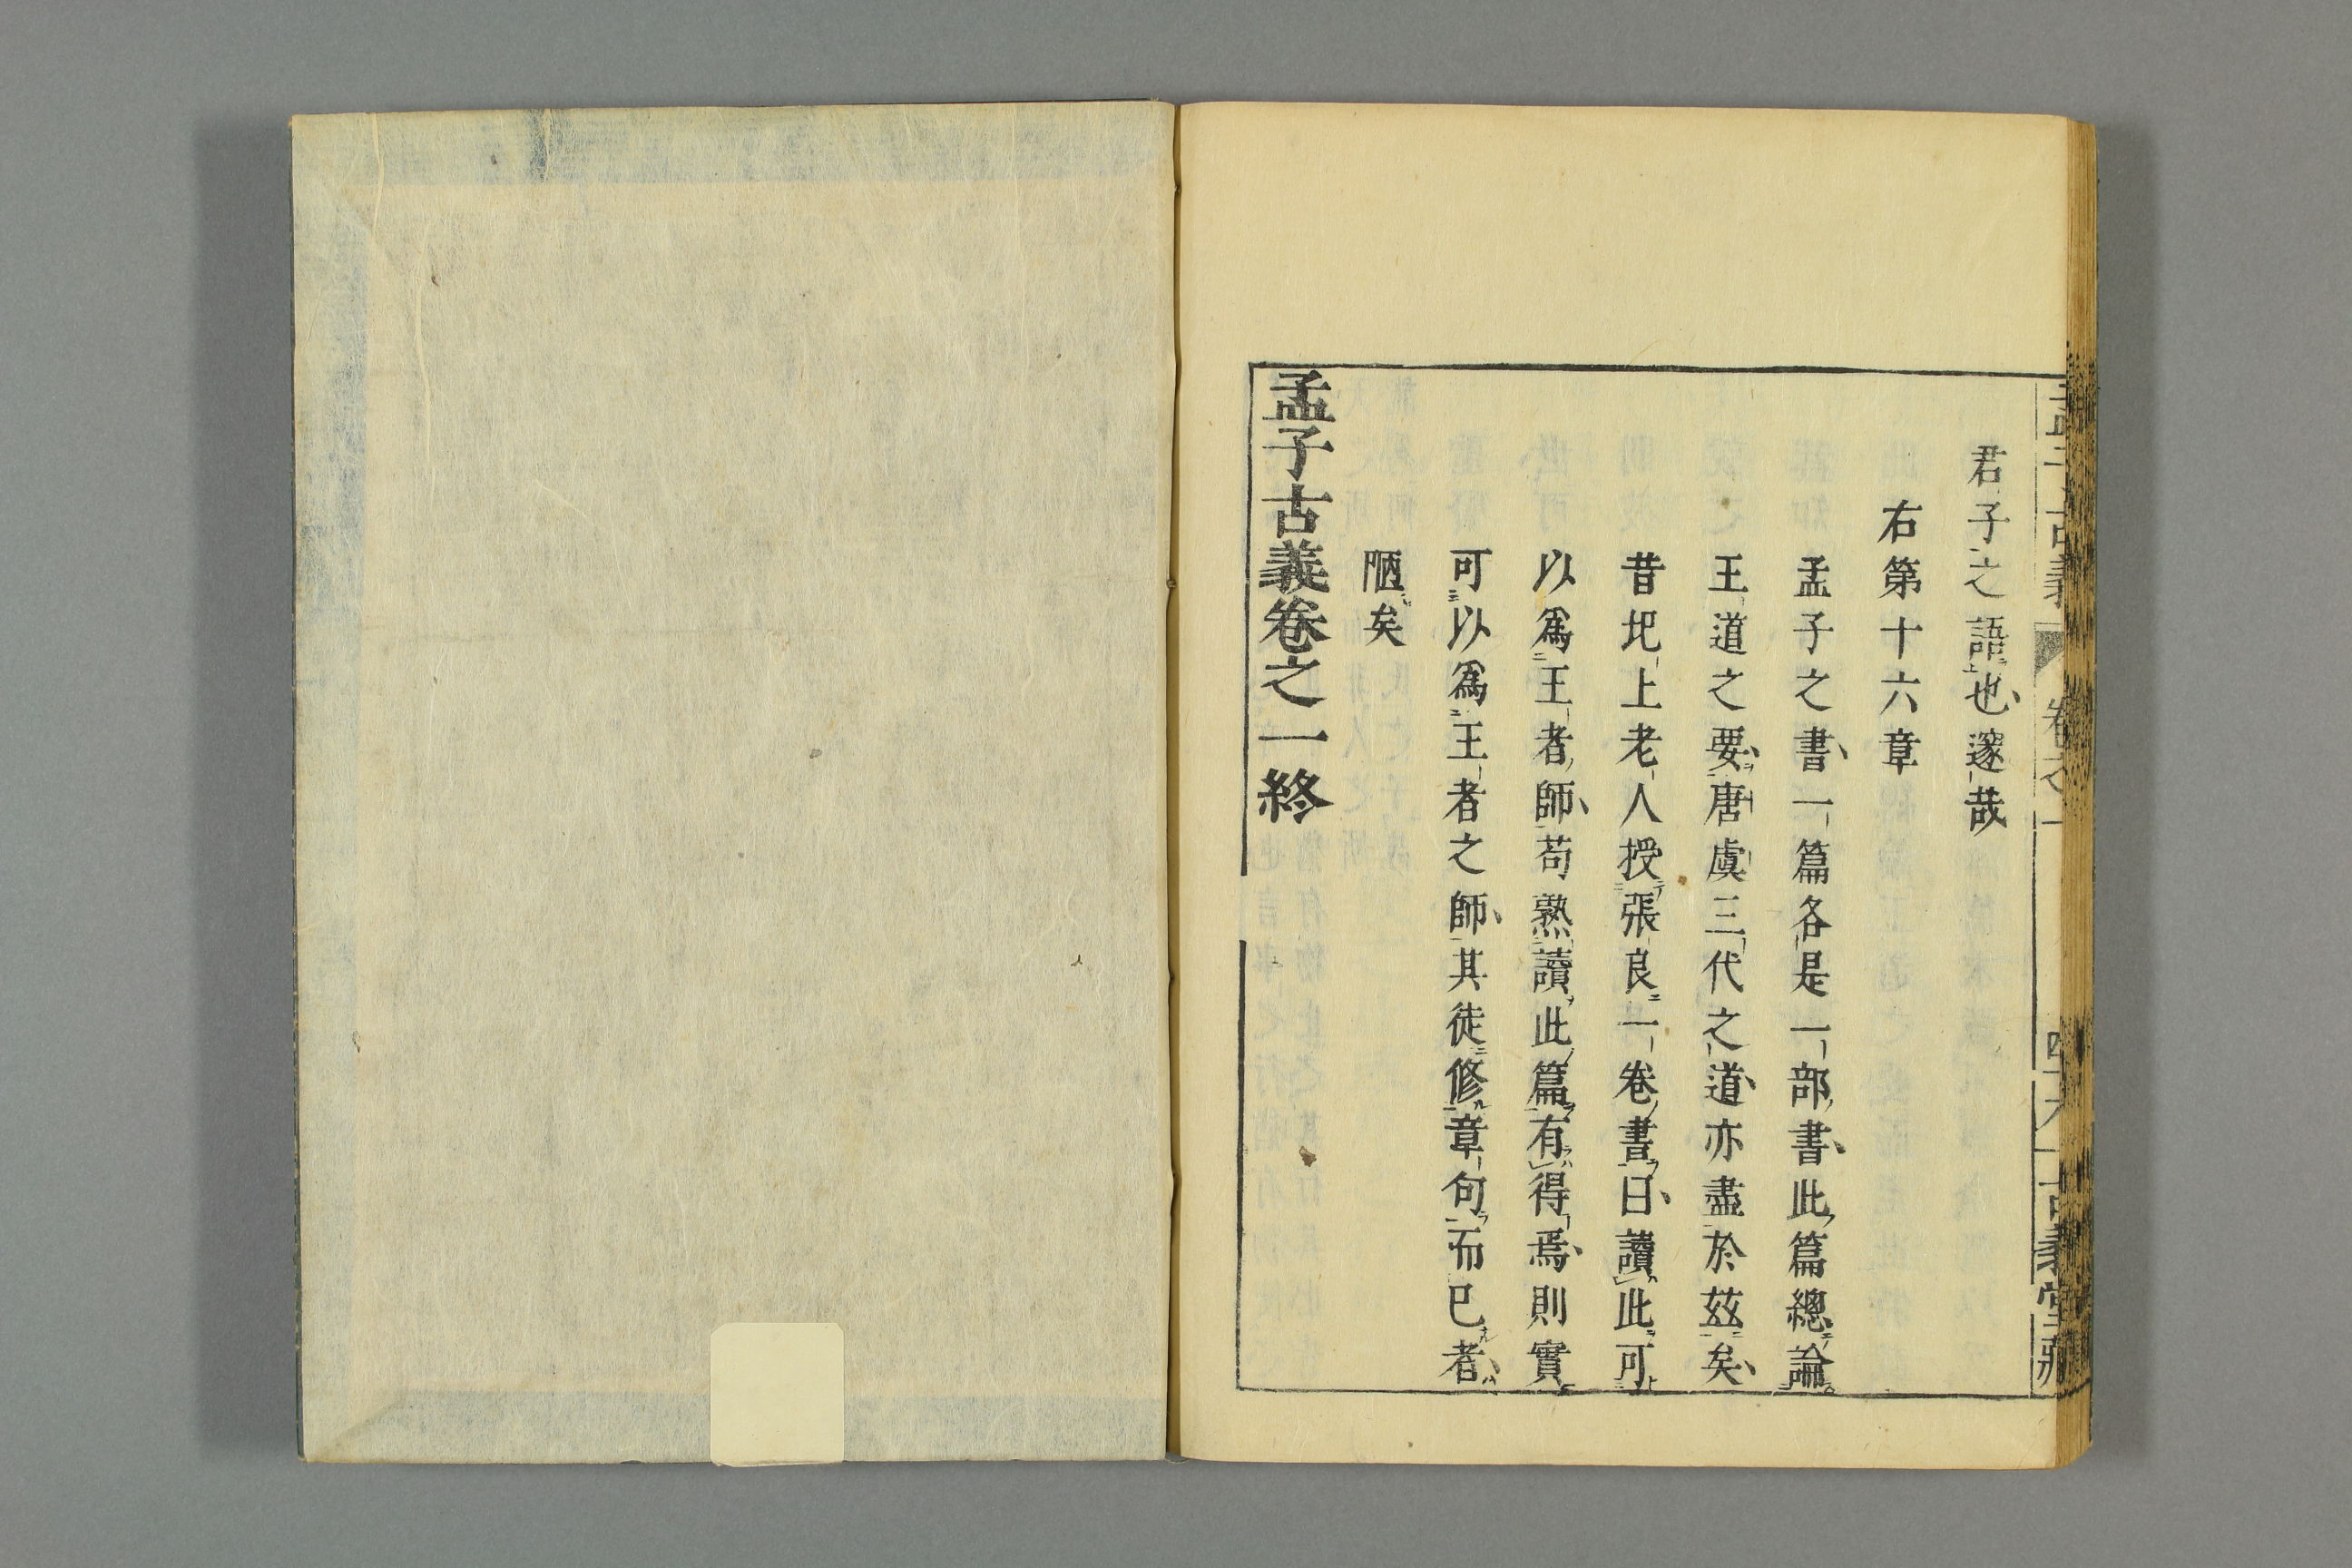 君子之語也邃哉
右第十六章
孟子之書一篇各是一部書此篇總論
王道之要唐虞三代之道亦盡於茲矣
昔圯上老人授張良一卷書曰讀此可
以爲王者師苟熟讀此篇有得焉則實
可以爲王者之師其徒修章句而已者
陋矣
孟子古義卷之一終